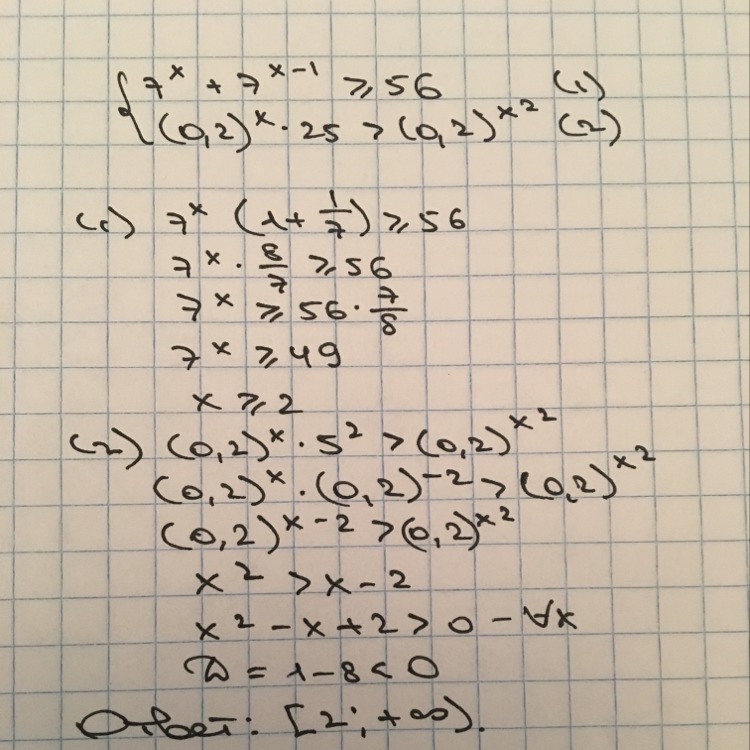 { 7^x + 7^{x-1} ⩾ 56 (1)
(0,2)^x · 25 > (0,2)^{x^2} (2)
(1) 7^x (1 + 1/7) ⩾ 56
7^x · 8/7 ⩾ 56
7^x ⩾ 56 · 7/8
7^x ⩾ 49
x ⩾ 2
(2) (0,2)^x · 5^2 > (0,2)^{x^2}
(0,2)^x · (0,2)^{-2} > (0,2)^{x^2}
(0,2)^{x-2} > (0,2)^{x^2}
x^2 > x - 2
x^2 - x + 2 > 0 - ∀x
D = 1 - 8 < 0
Ответ: [2; +∞).